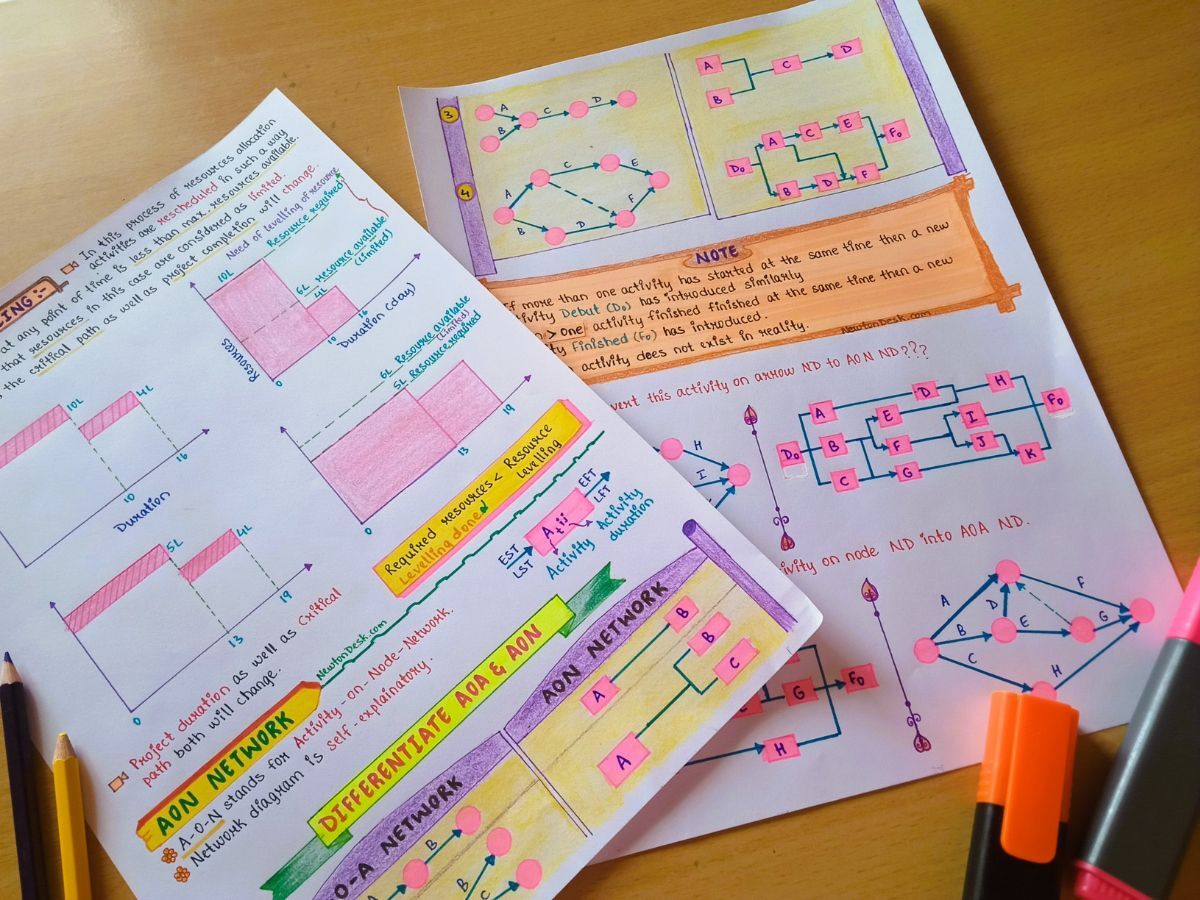 CING :-
In this process of resources allocation
activities are rescheduled in such a way
at any point of time is less than max. resources available.
that resources in this case are considered as limited.
the critical path as well as project completion will change.
Need of levelling of resource
10L
Resource required
6L Resource available
(Limited)
4L
Resources
0
10
16
Duration (day)
10L
4L
10
16
Duration
6L Resource available
(Limited)
5L Resource required
0
13
19
5L
4L
0
13
19
Required resources < Resource
Levelling done
Levelling
EST
LST
A
ij
EFT
LFT
Activity
Activity
duration
Project duration as well as Critical
path both will change.
NewtonDesk.com
AON NETWORK
A-O-N stands for Activity-on-Node-Network.
Network diagram is self-explainatory.
DIFFERENTIATE AOA & AON
O-A NETWORK
AON NETWORK
B
B
C
A
B
A
B
C
3
A
B
C
D
A
B
C
D
4
A
B
C
D
E
F
D₀
A
C
E
B
D
F
F₀
NOTE
If more than one activity has started at the same time then a new
tivity Debut (D₀) has introduced similarly
n > one activity finished finished at the same time then a new
ty Finished (F₀) has introduced.
activity does not exist in reality.
NewtonDesk.com
vert this activity on arrow ND to AON ND???
H
I
D₀
A
B
C
D
E
F
G
H
I
J
K
F₀
ivity on node ND into AOA ND.
G
F₀
H
A
B
C
D
E
F
G
H